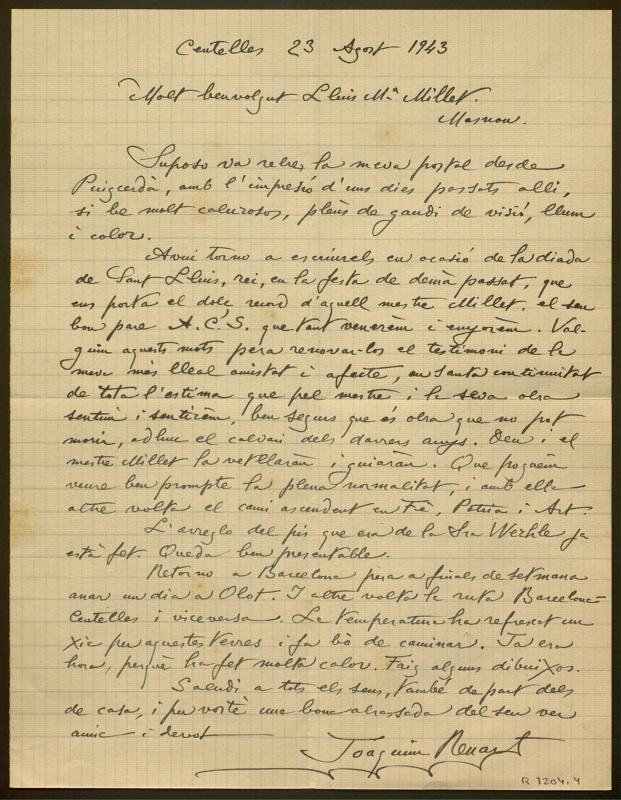 Centelles 23 Agost 1943
Molt benvolgut Lluis Mª Millet.
Masnou.
Suposo va rebre la meva postal desde
Puigcerdà, amb l'impresió d'uns dies passats allí,
si be molt calurosos, plens de gaudi de visió, llum
i color.
Avui torno a escriurels en ocasió de la diada
de Sant Lluis, rei, en la festa de demà passat, que
ens porta el dolç record d'aquell mestre Millet, el seu
bon pare A.C.S. que tant venerèm i enyorèm. Val-
guin aquests mots pera renovar-los el testimoni de la
meva més lleal amistat i afecte, en santa continuitat
de tota l'estima que pel mestre i la seva obra
sentim i sentirèm, ben segurs que és obra que no pot
morir, adhuc el calvari dels darrers anys. Deu i el
mestre Millet la vetllaràn i guiaràn. Que poguèm
veure ben prompte la plena normalitat, i amb ella
altre volta el camí ascendent en Fè, Patria i Art.
L'arreglo del pis que era de la Sra Wehrle ja
està fet. Queda ben presentable.
Retorno a Barcelona pera a finals de setmana
anar un dia a Olot. I altre volta la ruta Barcelona-
Centelles i viceversa. La temperatura ha refrescat un
xic per aquestes terres i fa bò de caminar. Ja era
hora, perquè ha fet molta calor. Faig alguns dibuixos.
Saludi a tots els seus, també de part dels
de casa, i per vostè una bona abrassada del seu ver
amic i devot
Joaquim Renart
R 1204.4